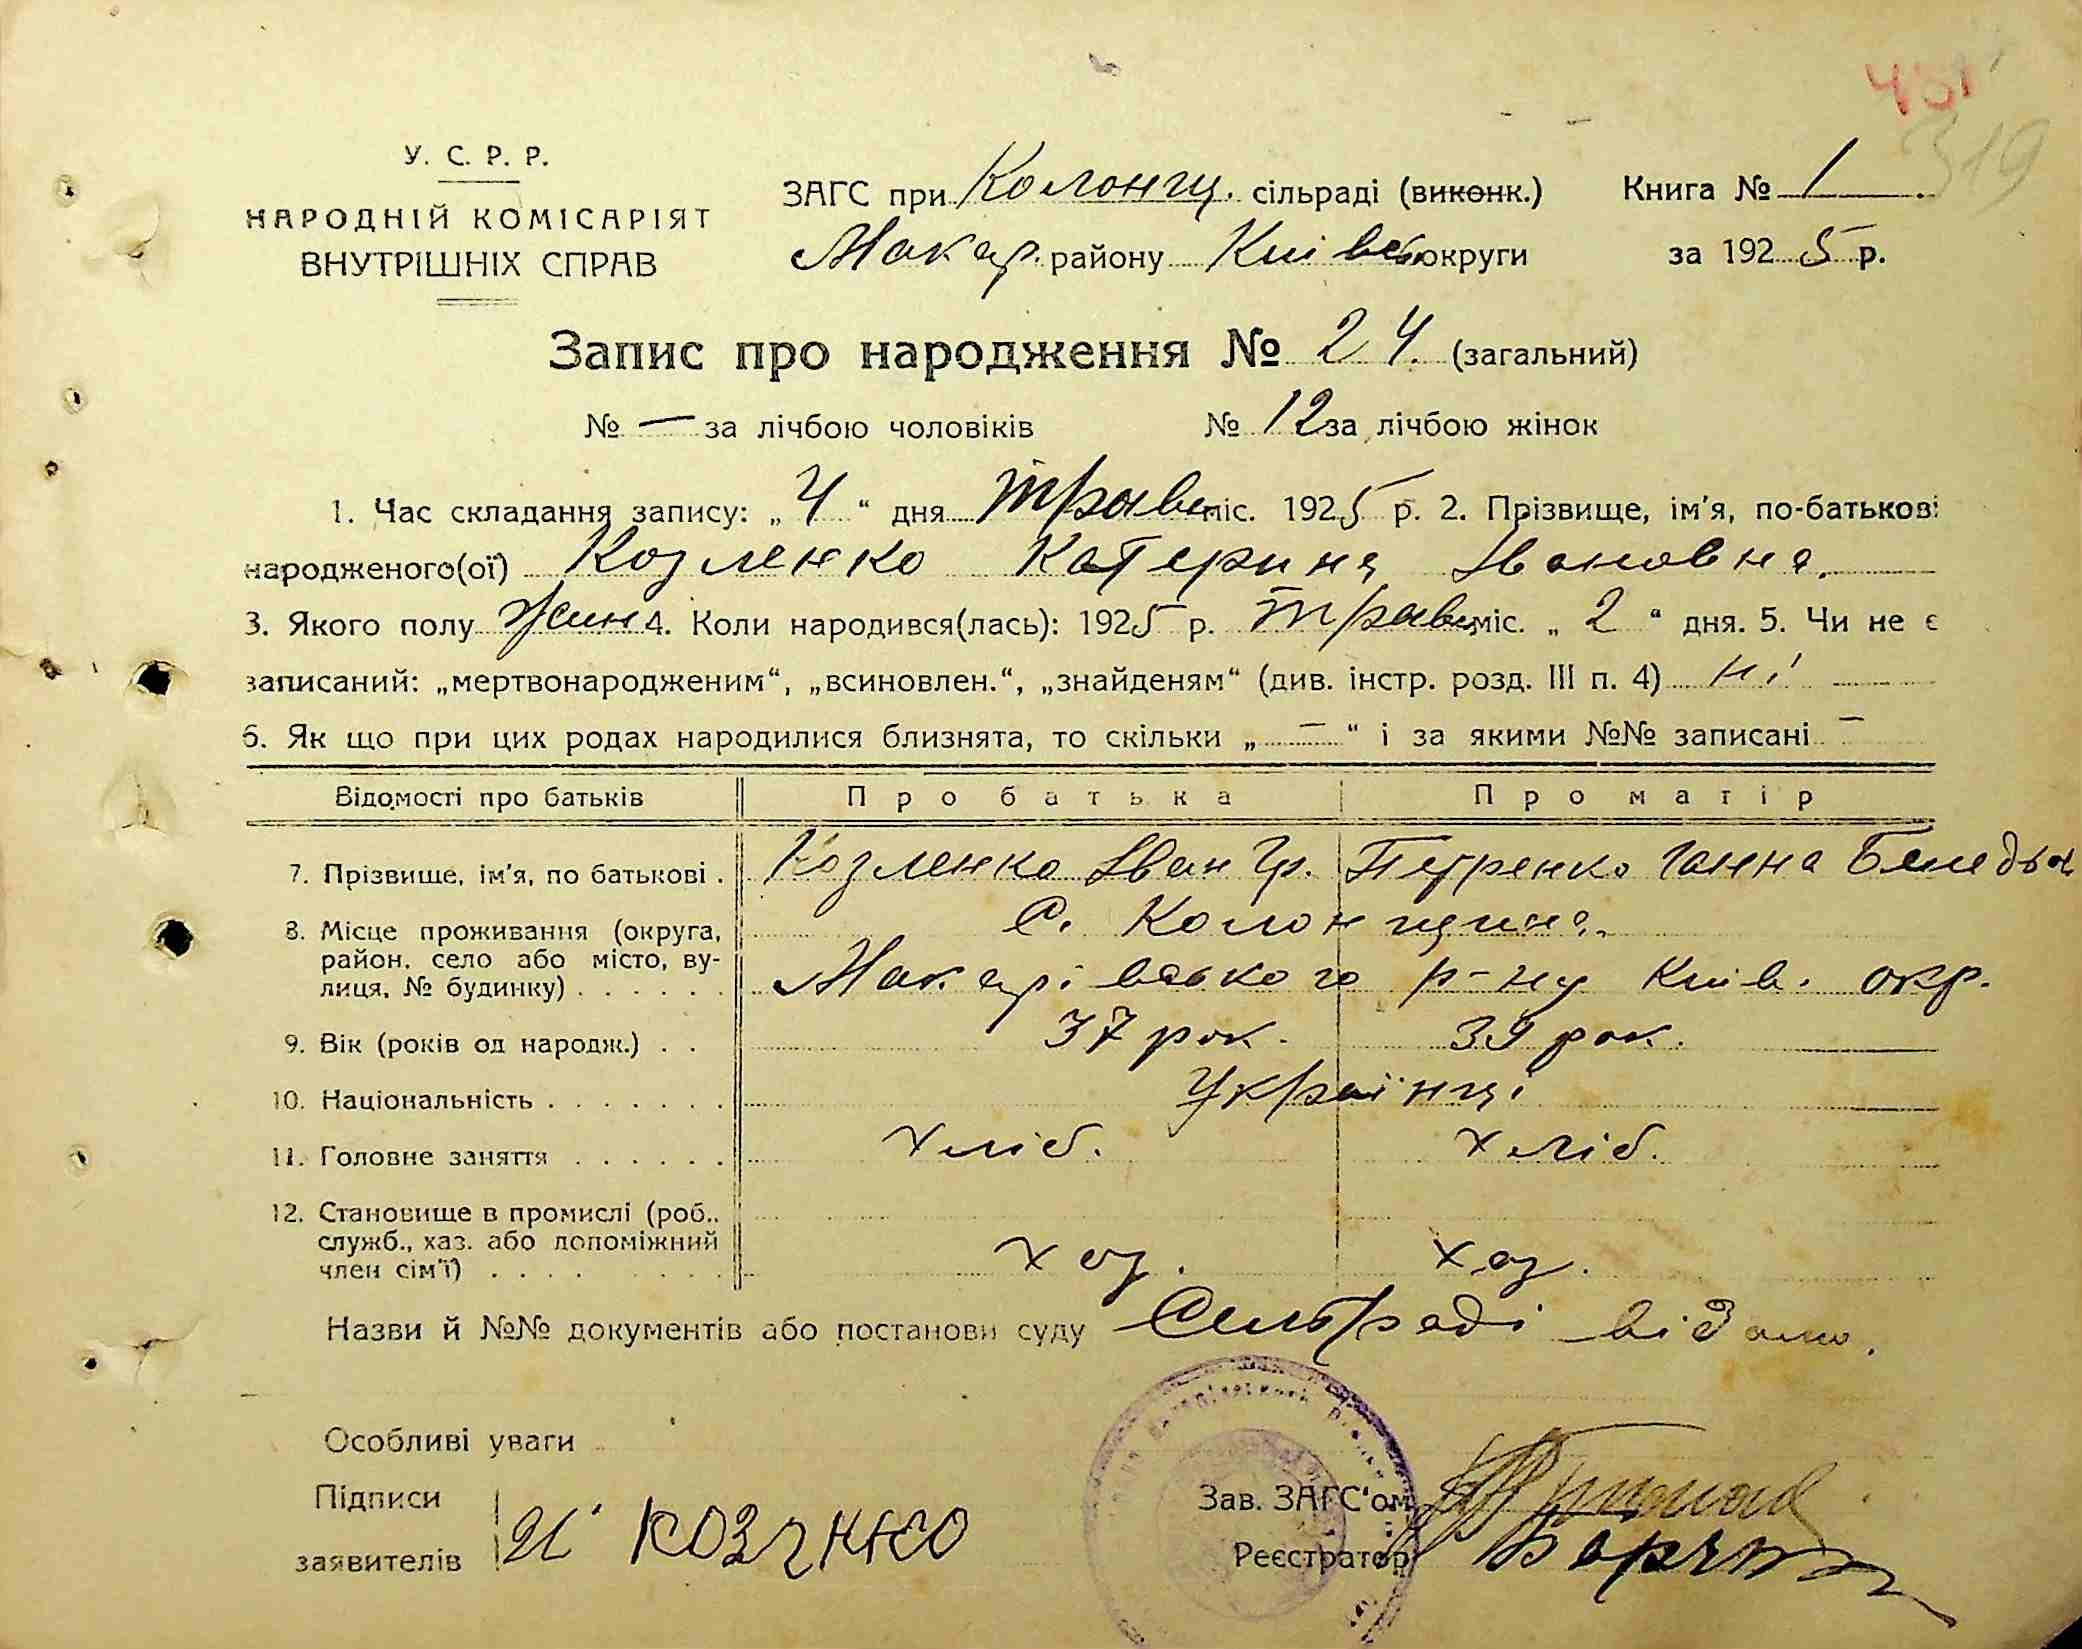 431
319
У. С. Р. Р.
НАРОДНІЙ КОМІСАРІЯТ
ВНУТРІШНІХ СПРАВ
ЗАГС при Колонщ. сільраді (виконк.) Книга № 1
Макар. району Київськ округи за 1925 р.
Запис про народження № 24. (загальний)
№ — за лічбою чоловіків № 12 за лічбою жінок
1. Час складання запису: „4“ дня травн міс. 1925 р. 2. Прізвище, ім'я, по-батькові
народженого(ої) Козленко Катерина Івановна.
3. Якого полу жин 4. Коли народився(лась): 1925 р. травн міс. „2“ дня. 5. Чи не є
записаний: „мертвонародженим“, „всиновлен.“, „знайденям“ (див. інстр. розд. III п. 4) ні
6. Як що при цих родах народилися близнята, то скільки „—“ і за якими №№ записані —
Відомості про батьків Про батька Про матір
7. Прізвище, ім'я, по батькові . Козленко Іван Гр. Петренко Ганна
8. Місце проживання (округа, С. Колонщина.
район, село або місто, ву-
лиця, № будинку) . . . . . . Макарівського р-ну Київ. окр.
9. Вік (років од народж.) . . 37 рок. 39 рок.
10. Національність . . . . . . . Українці
11. Головне заняття . . . . . . хліб. хліб.
12. Становище в промислі (роб.,
служб., хаз. або допоміжний
член сім'ї) . . . . хаз. хаз.
Назви й №№ документів або постанови суду Сельраді відомо.
Особливі уваги
Підписи
заявителів И козлнко
Зав. ЗАГС'ом
Реєстратор